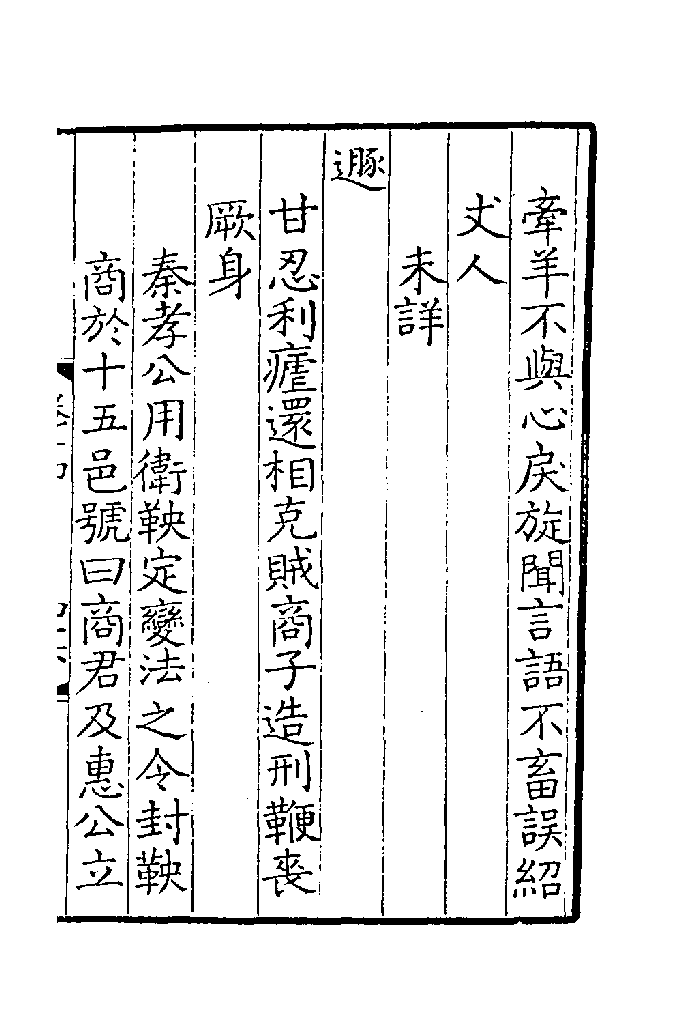 牽羊不與心戾旋聞言語不畜誤紹
丈人
未詳
遯
甘忍利瘧還相克賊商子造刑鞭喪
厥身
秦孝公用衛鞅定變法之令封鞅
商於十五邑號曰商君及惠公立